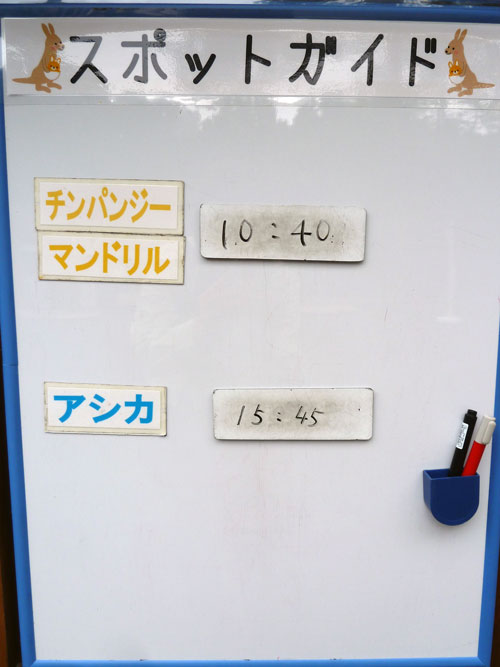 スポットガイド
チンパンジー
マンドリル
10:40
アシカ
15:45